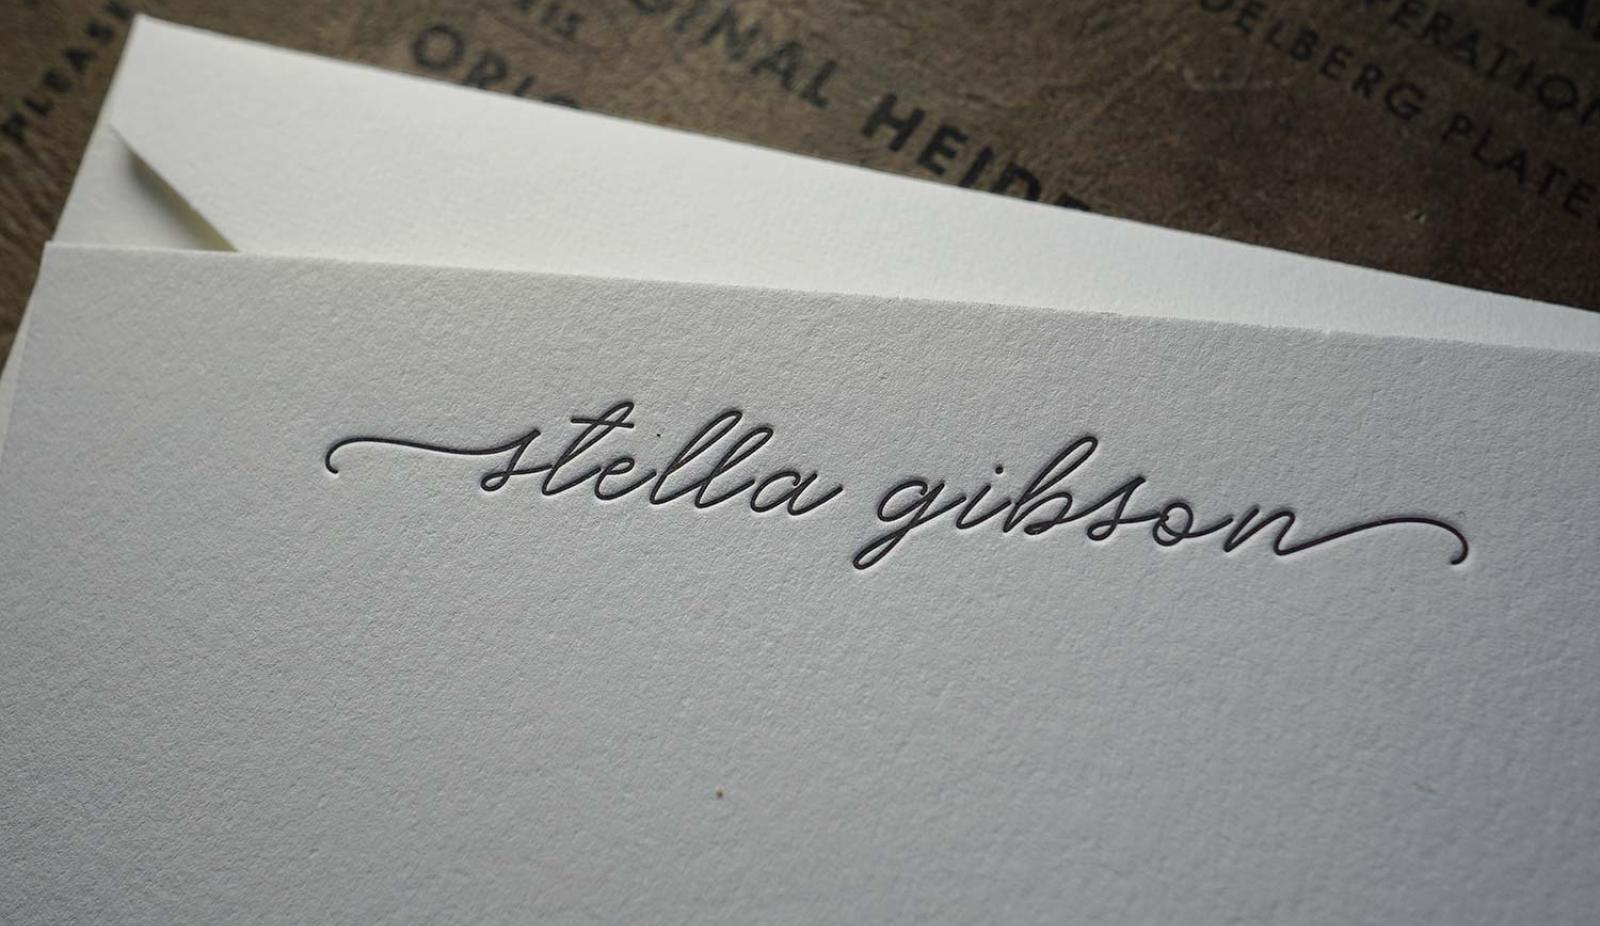 PLEASE
ORIGINAL HEIDE
ORIG
ERATION
DELBERG PLATE
stella gibson